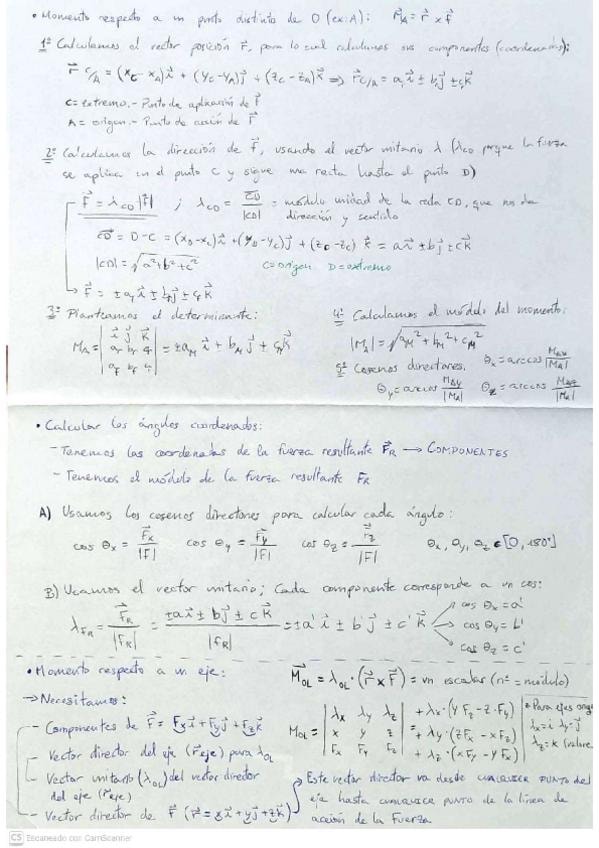 • Momento respecto a un punto distinto de O (ex: A): M⃗_A = r⃗ × f⃗
1º Calculamos el vector posición r⃗, para lo cual calculamos sus componentes (coordenadas):
r⃗ C/A = (x_C - x_A)i⃗ + (y_C - y_A)j⃗ + (z_C - z_A)k⃗ ⇒ r⃗_C/A = a_r i⃗ ± b_r j⃗ ± c_r k⃗
C = extremo.- Punto de aplicación de F⃗
A = origen.- Punto de acción de r⃗
2º Calculamos la dirección de f⃗, usando el vector unitario λ (λ_CD porque la fuerza
se aplica en el punto C y sigue una recta hasta el punto D)
F⃗ = λ_CD |F⃗| ; λ_CD = CD⃗/|CD| = módulo unidad de la recta CD, que nos da
dirección y sentido
CD⃗ = D - C = (x_D - x_C)i⃗ + (y_D - y_C)j⃗ + (z_D - z_C)k⃗ = ai⃗ ± bj⃗ ± ck⃗
|CD| = √(a² + b² + c²) C = origen D = extremo
F⃗ = ±a_f i⃗ ± b_f j⃗ ± c_f k⃗
3º Planteamos el determinante:
M_A = | i⃗ j⃗ k⃗ | a_r b_r c_r | a_f b_f c_f | = ±a_M i⃗ + b_M j⃗ ± c_M k⃗
4º Calculamos el módulo del momento:
|M_A| = √(a_M² + b_M² + c_M²)
5º Cosenos directores. θ_x = arccos M_Ax/|M_A|
θ_y = arccos M_Ay/|M_A| θ_z = arccos M_Az/|M_A|
• Calcular los ángulos coordenados:
- Tenemos las coordenadas de la fuerza resultante F⃗_R → COMPONENTES
- Tenemos el módulo de la fuerza resultante F_R
A) Usamos los cosenos directores para calcular cada ángulo:
cos θ_x = F⃗_x/|F| cos θ_y = F⃗_y/|F| cos θ_z = F⃗_z/|F| θ_x, θ_y, θ_z ∈ [0, 180°]
B) Usamos el vector unitario; Cada componente corresponde a un cos:
λ_FR = F⃗_R/|F_R| = ±ai⃗ ± bj⃗ ± ck⃗/|F_R| = ±a'i⃗ ± b'j⃗ ± c'k⃗
cos θ_x = a'
cos θ_y = b'
cos θ_z = c'
• Momento respecto a un eje: M⃗_OL = λ_OL · (r⃗ × F⃗) = un escalar (nº = módulo)
→ Necesitamos:
- Componentes de F⃗ = F_x i⃗ + F_y j⃗ + F_z k⃗
- Vector director del eje (r⃗eje) para λ_OL
- Vector unitario (λ_OL) del vector director
del eje (r⃗eje)
- Vector director de F⃗ (r⃗ = xi⃗ + yj⃗ + zk⃗)
M_OL = | λ_x λ_y λ_z | x y z | F_x F_y F_z | =
+ λ_x · (y F_z - z · F_y)
+ λ_y · (z F_x - x F_z)
+ λ_z · (x F_y - y F_x)
* Para ejes
λ_x = i λ_y = j
λ_z = k
Este vector director va desde CUALQUIER PUNTO del
eje hasta CUALQUIER PUNTO de la línea de
acción de la Fuerza
CS Escaneado con CamScanner